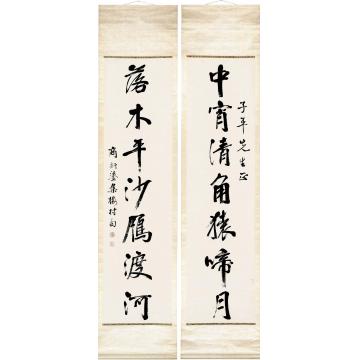 中宵清角猿啼月
子平先生正
落木平沙雁渡河
商衍鎏集梅村句